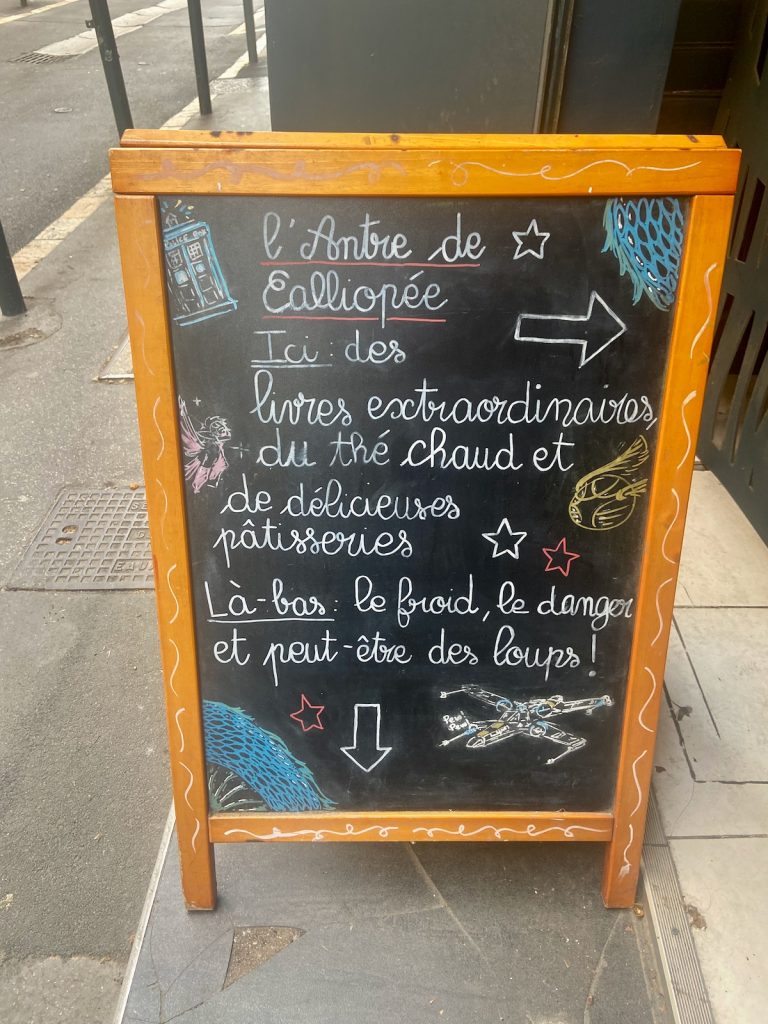 POLICE BOX
l'Antre de
Calliopée
Ici : des
livres extraordinaires,
du thé chaud et
de délicieuses
pâtisseries
Là-bas : le froid, le danger
et peut-être des loups !
Pew
Pew